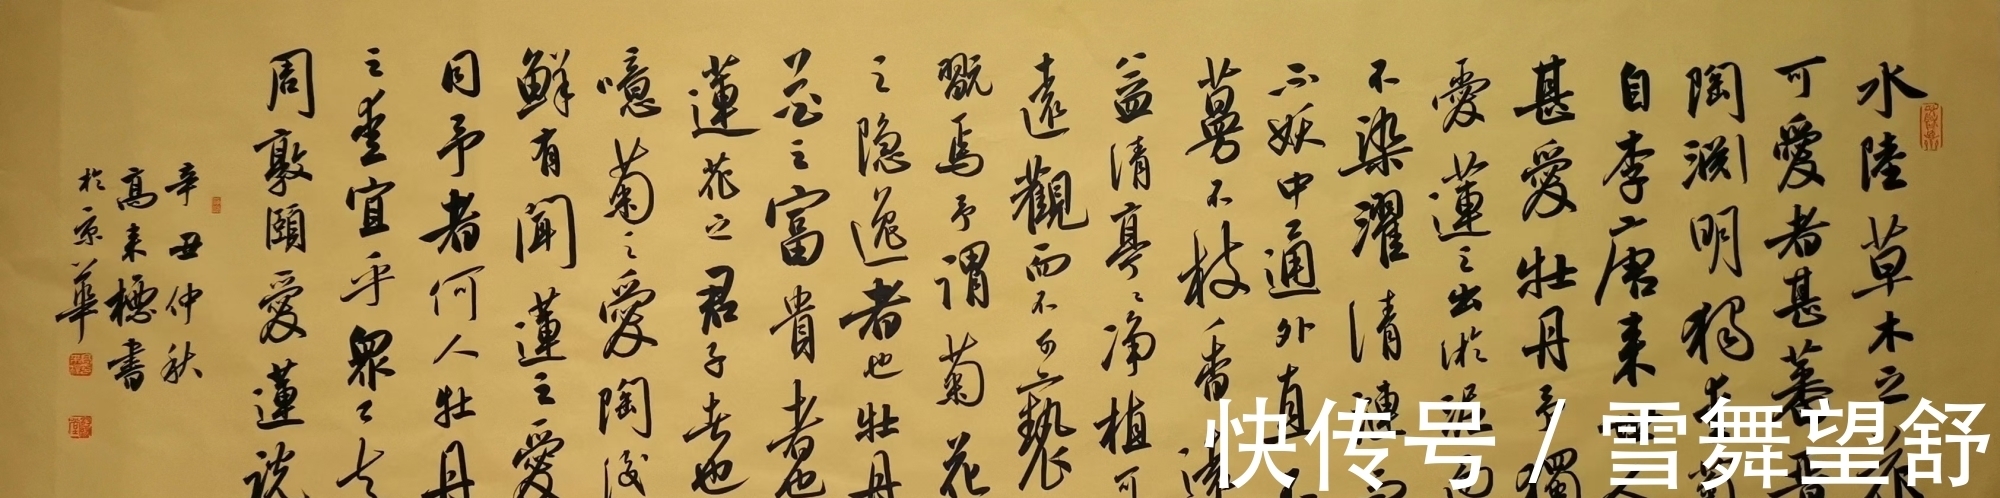 水陸草木之
可愛者甚蕃
陶渊明独
自李唐来
甚愛牡丹予獨
愛蓮之出淤泥而
不染濯清漣
不妖中通外直不
蔓不枝香遠
益清亭〻净植可
遠觀而不可褻
翫焉予谓菊花
之隐逸者也牡丹
花之富貴者也
蓮花之君子者也
噫菊之愛陶後
鮮有闻蓮之愛
同予者何人牡丹
之愛宜乎眾
周敦頤愛蓮说
辛丑仲秋
高来標書
於京華
快传号 / 雪舞望舒